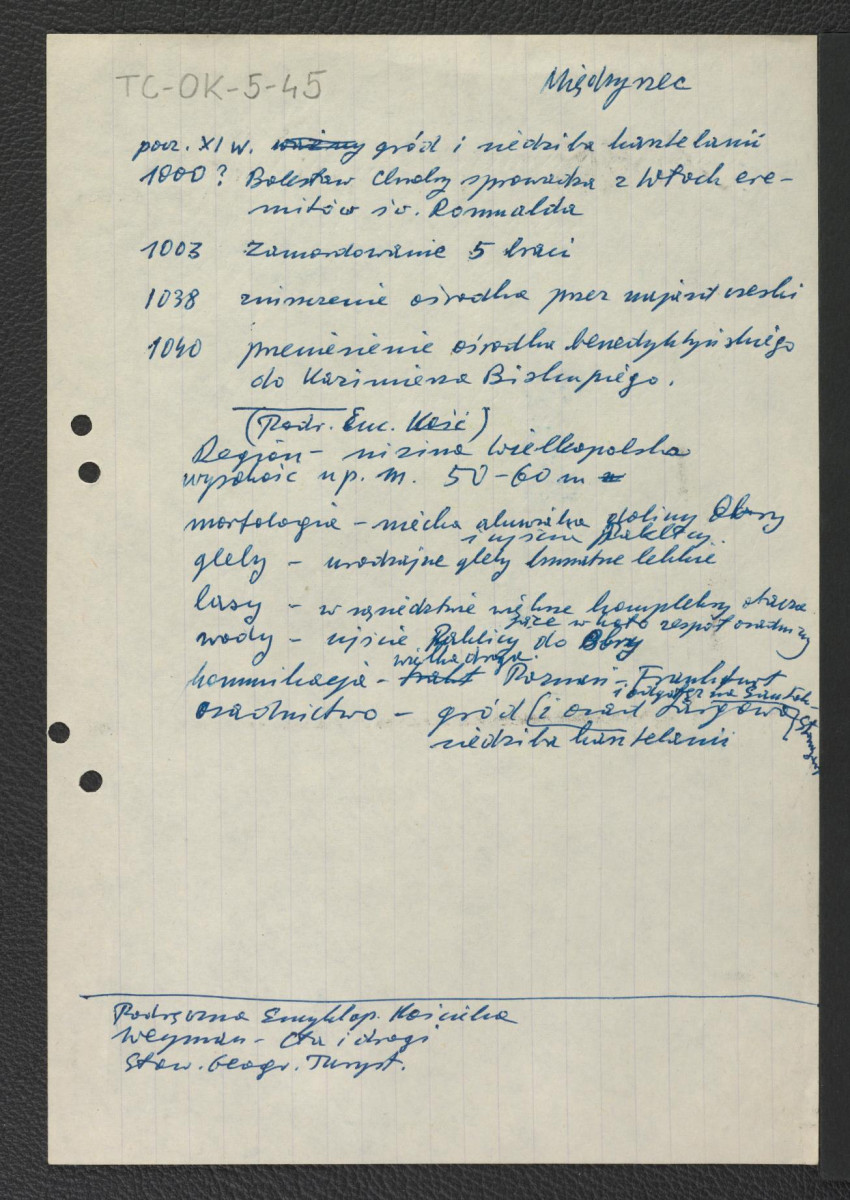 TC-OK-5-45
Międzyrzec
pocz. XI w. ważny gród i siedziba kasztelanii
1000? Bolesław Chrobry sprowadza z Włoch ere-
mitów św. Romualda
1003 Zamordowanie 5 braci
1038 zniszczenie ośrodka przez najazd czeski
1040 przeniesienie ośrodka benedyktyńskiego
do Kazimierza Biskupiego.
(Podr. Enc. Kość)
Region - nizina Wielkopolska
wysokość n p. m. 50-60 m
morfologia - niecka aluwialna doliny Obry
i ujścia Paklicy.
gleby - urodzajne gleby brunatne lekkie
lasy - w sąsiedztwie większe kompleksy otacza
jące w koło zespół osadniczy
wody - ujście Paklicy do Obry
wielka droga
komunikacja - trakt Poznań - Frankfurt
i odgałęz na Santok-
osadnictwo - gród (i osad targowa)
siedziba kasztelanii
Podręczna Encyklop. Kościelna
Weyman - Cła i drogi
Słow. Geogr. Turyst.